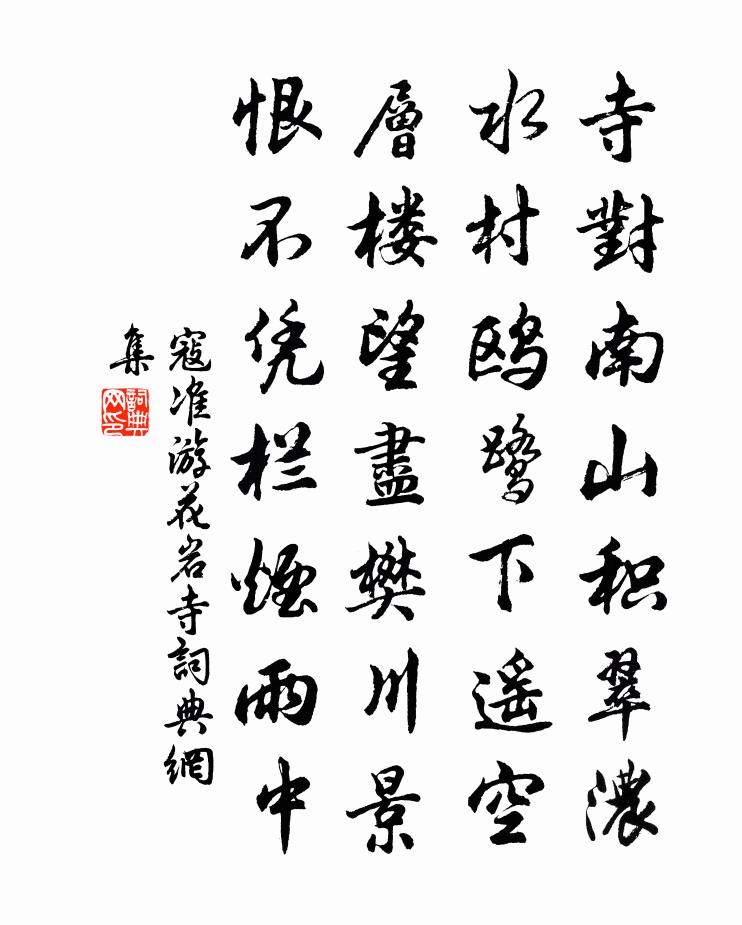 寺對南山积翠濃
水村鸥鹭下遥空
層楼望盡樊川景
恨不凭栏煙雨中
寇准游花岩寺詞典網
集
詞典
网印